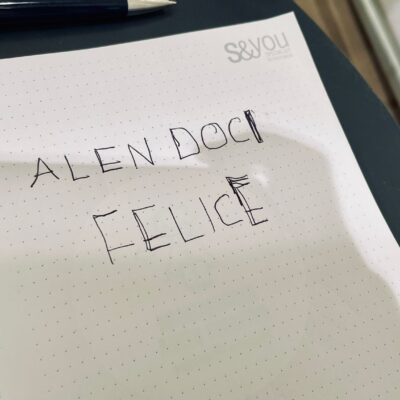 S&you
ALEN DOCI
FELICE